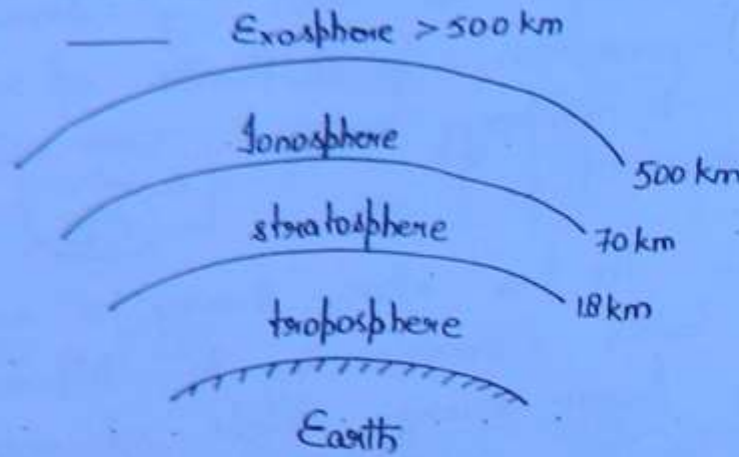 Exosphere > 500 km
Ionosphere
500 km
stratosphere
70 km
18 km
troposphere
Earth